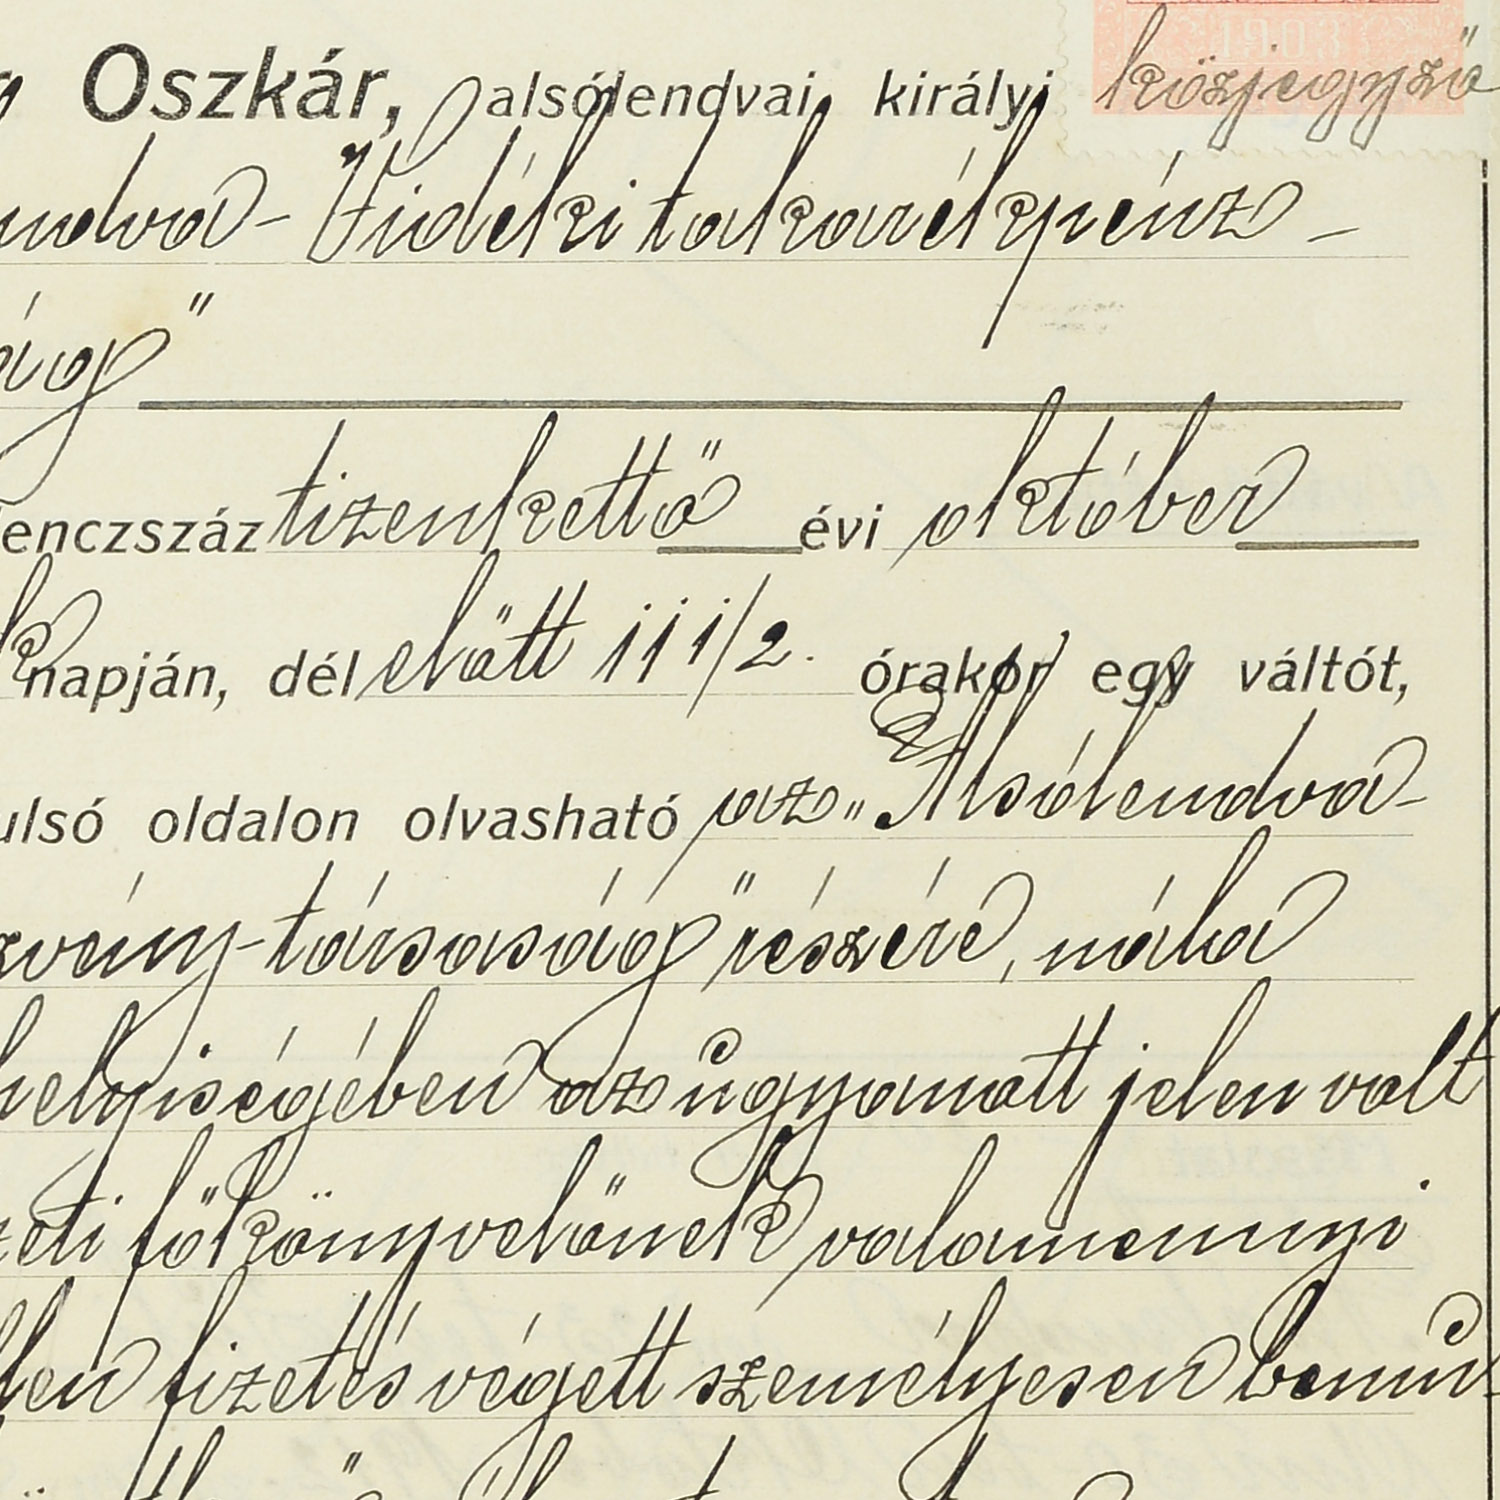 Oszkár, alsólendvai királyi közjegyző
1903
endva-Vidéki takarékpénz-
ág"
lenczszáz tizenkettő évi október
napján, dél előtt 11 1/2. órakor egy váltót,
ulsó oldalon olvasható az „Alsólendva-
zvény-társaság" részére, nála
helyiségében az úgyanott jelen volt
zeti főkönyvelőnek valamennyi
llen fizetés végett személyesen bemu-